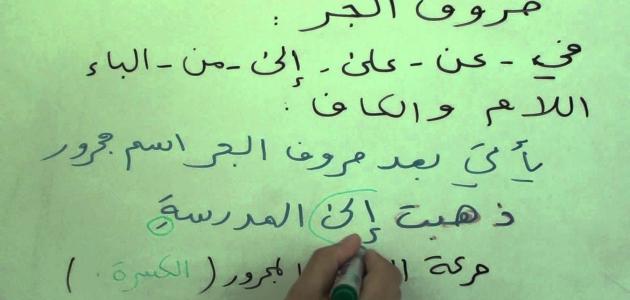 حروف الجر :
في - عن - على - إلى - من - الباء
اللام والكاف :
يأتي بعد حروف الجر اسم مجرور
ذهبت إلى المدرسةِ
حركة المجرور ( الكسرة )